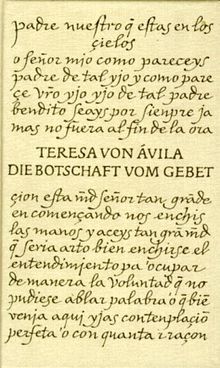 padre nuestro q̃ estas en los
çielos
o señor mio como pareçeys
padre de tal yjo y como pare
çe vr̃o yjo yjo de tal padre
bendito seays por sienpre ja
mas no fuera al fin de la ora
TERESA VON ÁVILA
DIE BOTSCHAFT VOM GEBET
çion esta m̃d señor tan grãde
en començando nos enchis
las manos y açeys tan grã m̃d
q̃ seria arto bien enchirse el
entendimiento pa ocupar
de manera la voluntad q̃ no
pudiese ablar palabra o q̃ biẽ
venja aqui yjas contenplaçiõ
perfeta o con quanta rraçon